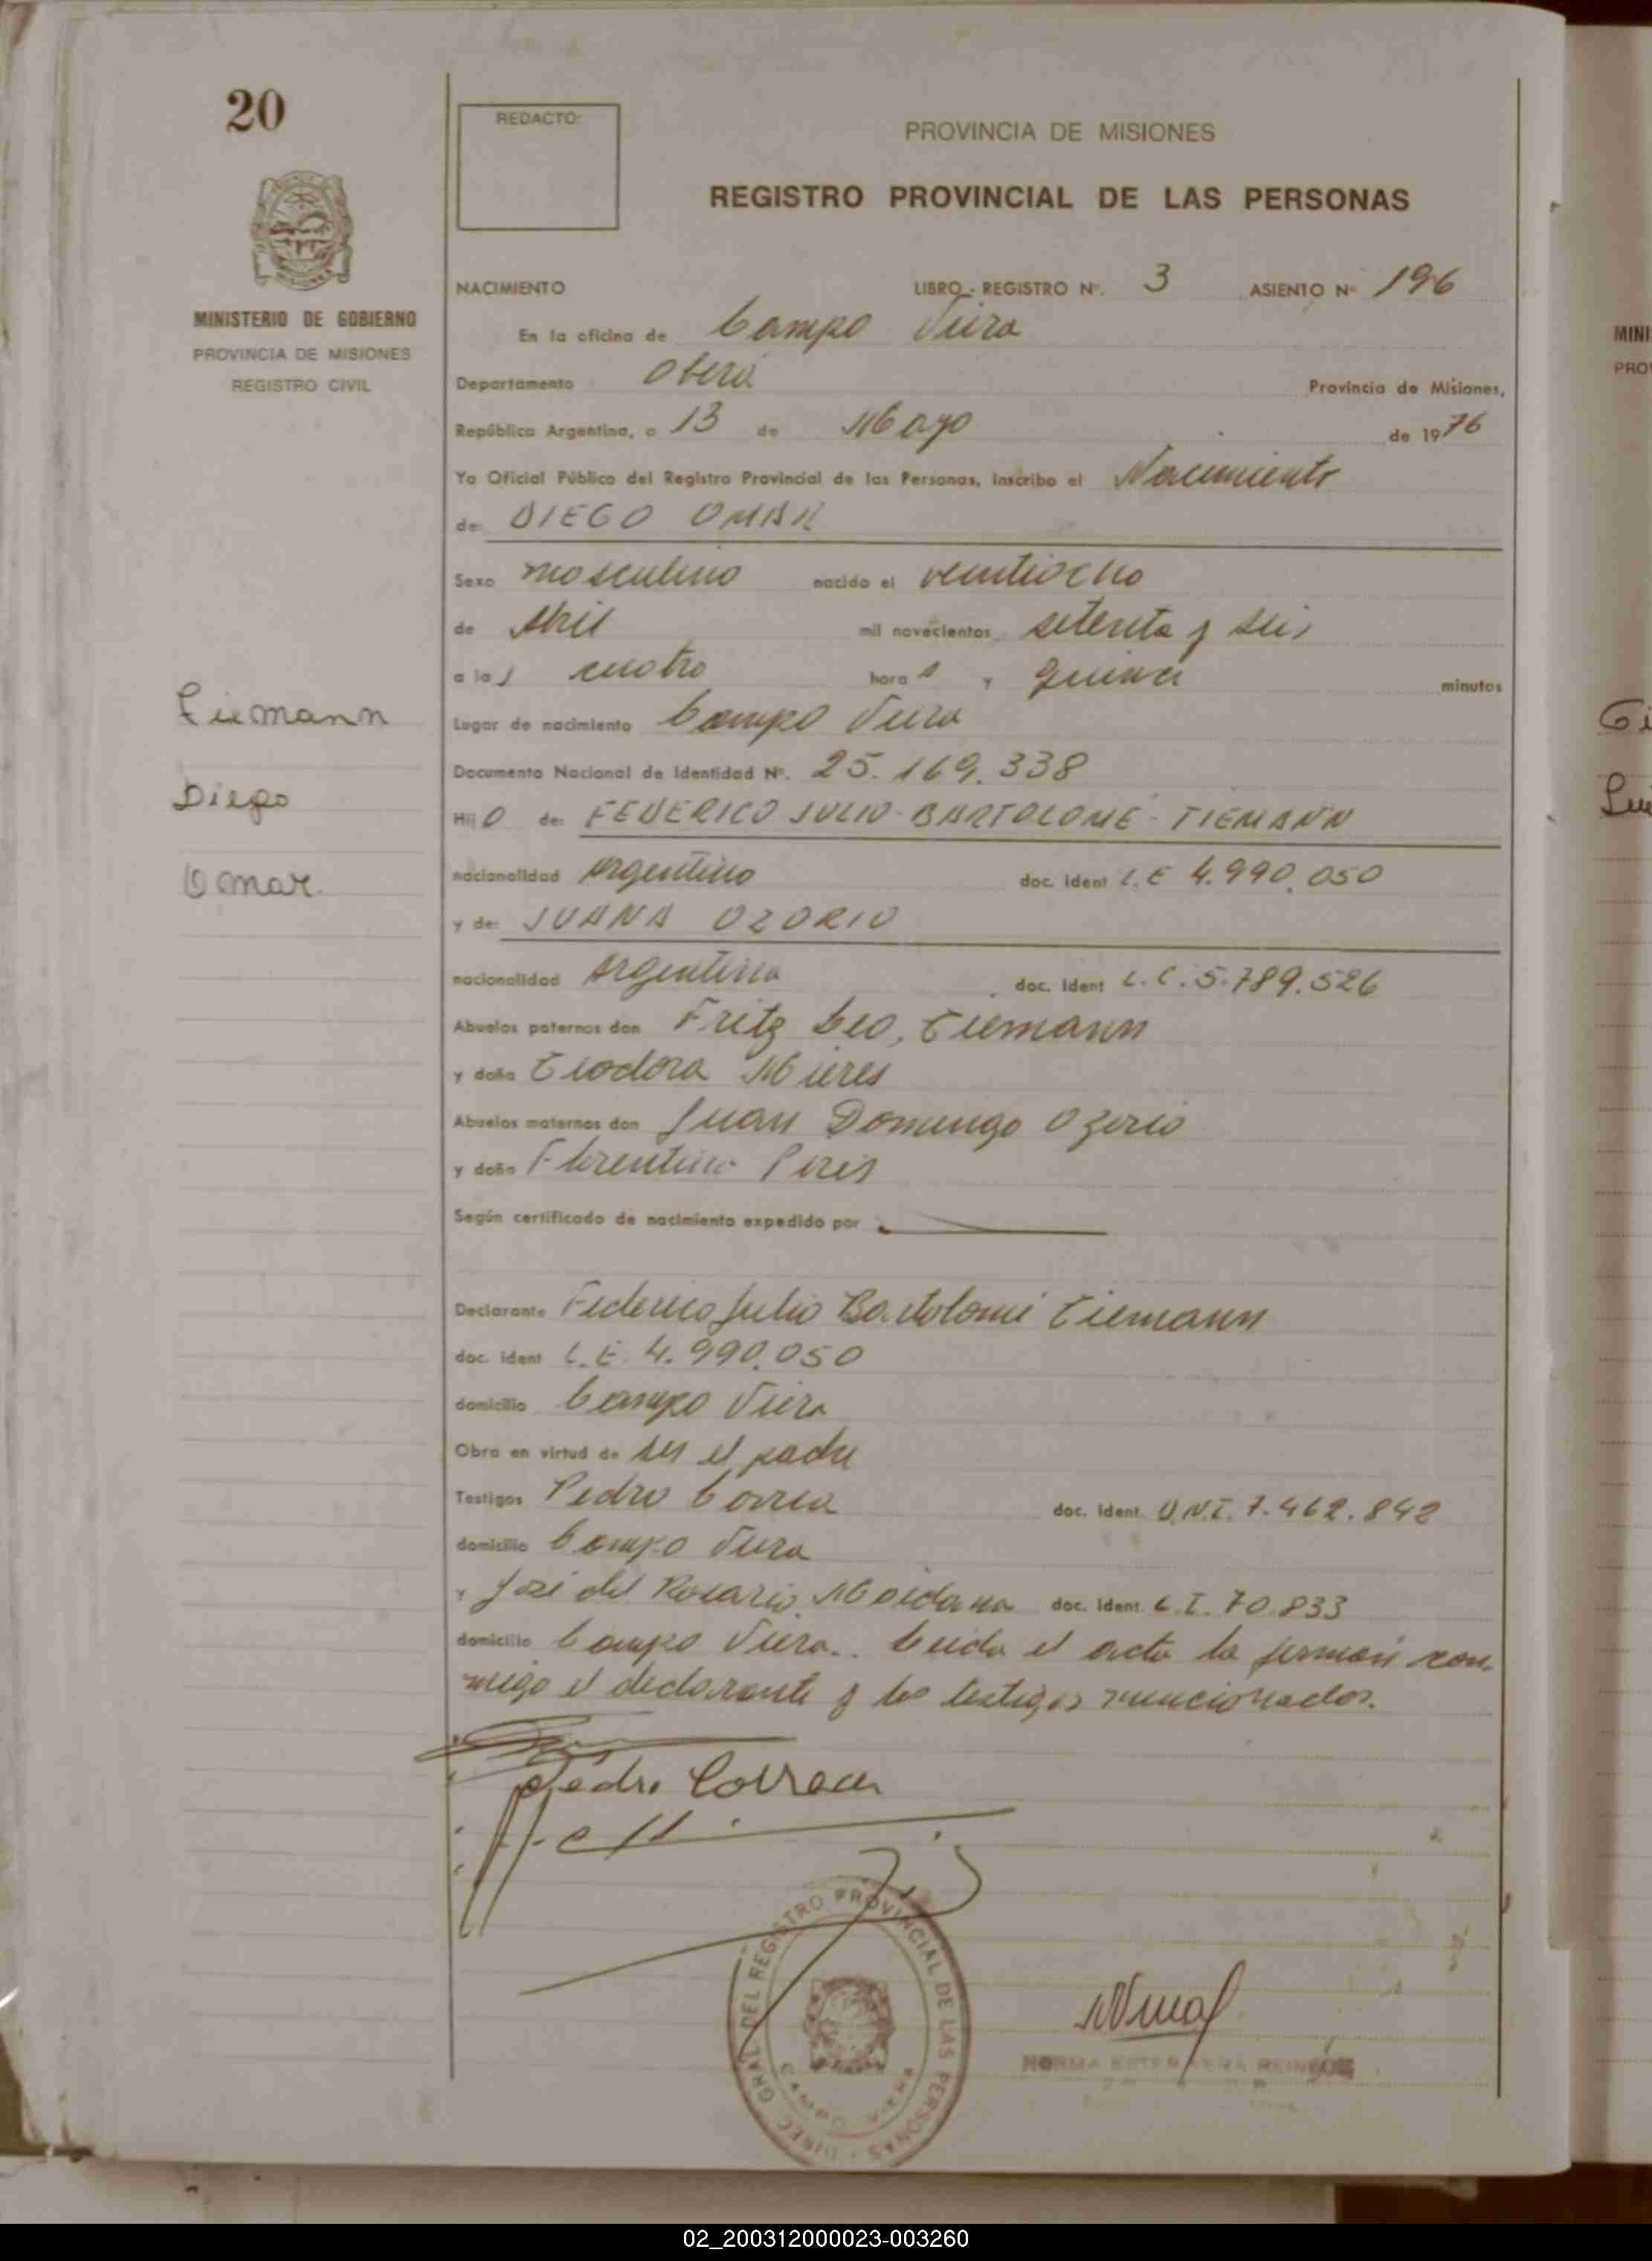 20
REDACTO:
PROVINCIA DE MISIONES
REGISTRO PROVINCIAL DE LAS PERSONAS
MINISTERIO DE GOBIERNO
PROVINCIA DE MISIONES
REGISTRO CIVIL
NACIMIENTO LIBRO - REGISTRO Nº. 3 ASIENTO Nº 196
En la oficina de Campo Viera
Departamento Oberá Provincia de Misiones,
República Argentina, a 13 de Mayo de 1976
Yo Oficial Público del Registro Provincial de las Personas, inscribo el Nacimiento
de: DIEGO OMAR
Sexo masculino nacido el veintiocho
de Abril mil novecientos setenta y seis
a las cuatro horas y quince minutos
Lugar de nacimiento Campo Viera
Documento Nacional de Identidad Nº. 25.169.338
Hijo de: FEDERICO JULIO BARTOLOMÉ - TIEMANN
nacionalidad Argentino doc. ident L.E 4.990.050
y de: JUANA OZORIO
nacionalidad Argentina doc. ident L.C. 5.789.526
Abuelos paternos don Fritz Leo, Tiemann
y doña Teodora Mieres
Abuelos maternos don Juan Domingo Ozorio
y doña Florentina Piris
Según certificado de nacimiento expedido por
Declarante Federico Julio Bartolomé Tiemann
doc. ident L.E. 4.990.050
domicilio Campo Viera
Obra en virtud de ser el padre
Testigos Pedro Correa doc. ident. D.N.I. 7.462.842
domicilio Campo Viera
y José del Rosario Maidana doc. ident. C.I. 70.833
domicilio Campo Viera.. Leida el acta la firman con-
migo el declarante y los testigos mencionados.
Tiemann
Diego
Omar.
Pedro Correa
DIREC. GRAL. DEL REGISTRO PROVINCIAL DE LAS PERSONAS -
CAMPO VIERA
NORMA ESTER
02_200312000023-003260